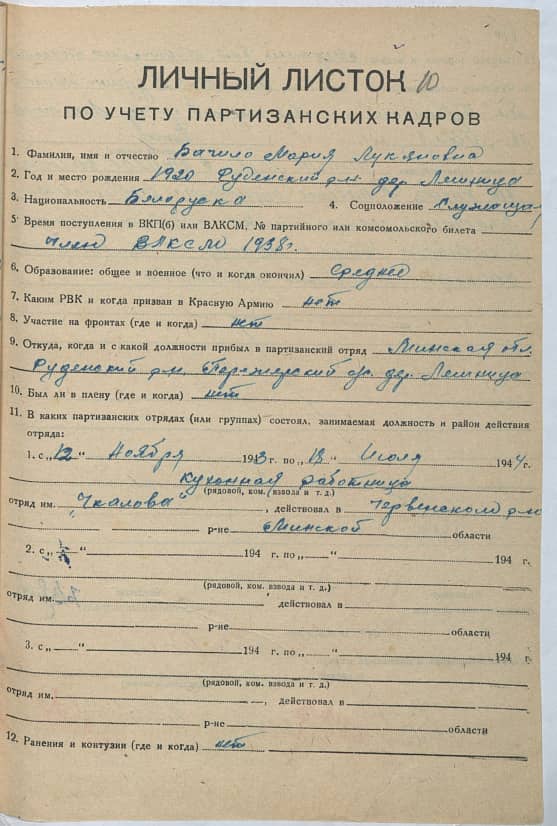 ЛИЧНЫЙ ЛИСТОК 10
ПО УЧЕТУ ПАРТИЗАНСКИХ КАДРОВ
1. Фамилия, имя и отчество Бачило Мария Лукяновна
2. Год и место рождения 1920 Руденский р-н дер. Лешница
3. Национальность Беларуска 4. Соцположение Служащая
5. Время поступления в ВКП(б) или ВЛКСМ, № партийного или комсомольского билета
член ВЛКСМ 1938 г.
6. Образование: общее и военное (что и когда окончил) Среднее
7. Каким РВК и когда призван в Красную Армию нет
8. Участие на фронтах (где и когда) нет
9. Откуда, когда и с какой должности прибыл в партизанский отряд Минская обл.
Руденский р-н, с/с. дер. Лешница
10. Был ли в плену (где и когда) нет
11. В каких партизанских отрядах (или группах) состоял, занимаемая должность и район действия
отряда:
1. с „12“ Ноября 1943 г. по „13“ Июля 1944 г.
кухонная работница
(рядовой, ком. взвода и т. д.)
отряд им. "Чкалова", действовал в Червенском р-не
р-не Минской области
2. с „ “ 194 г. по „ “ 194 г.
(рядовой, ком. взвода и т. д.)
отряд им. действовал в
р-не области
3. с „ “ 194 г. по „ “ 194 г.
(рядовой, ком. взвода и т. д.)
отряд им. , действовал в
р-не области
12. Ранения и контузии (где и когда) нет